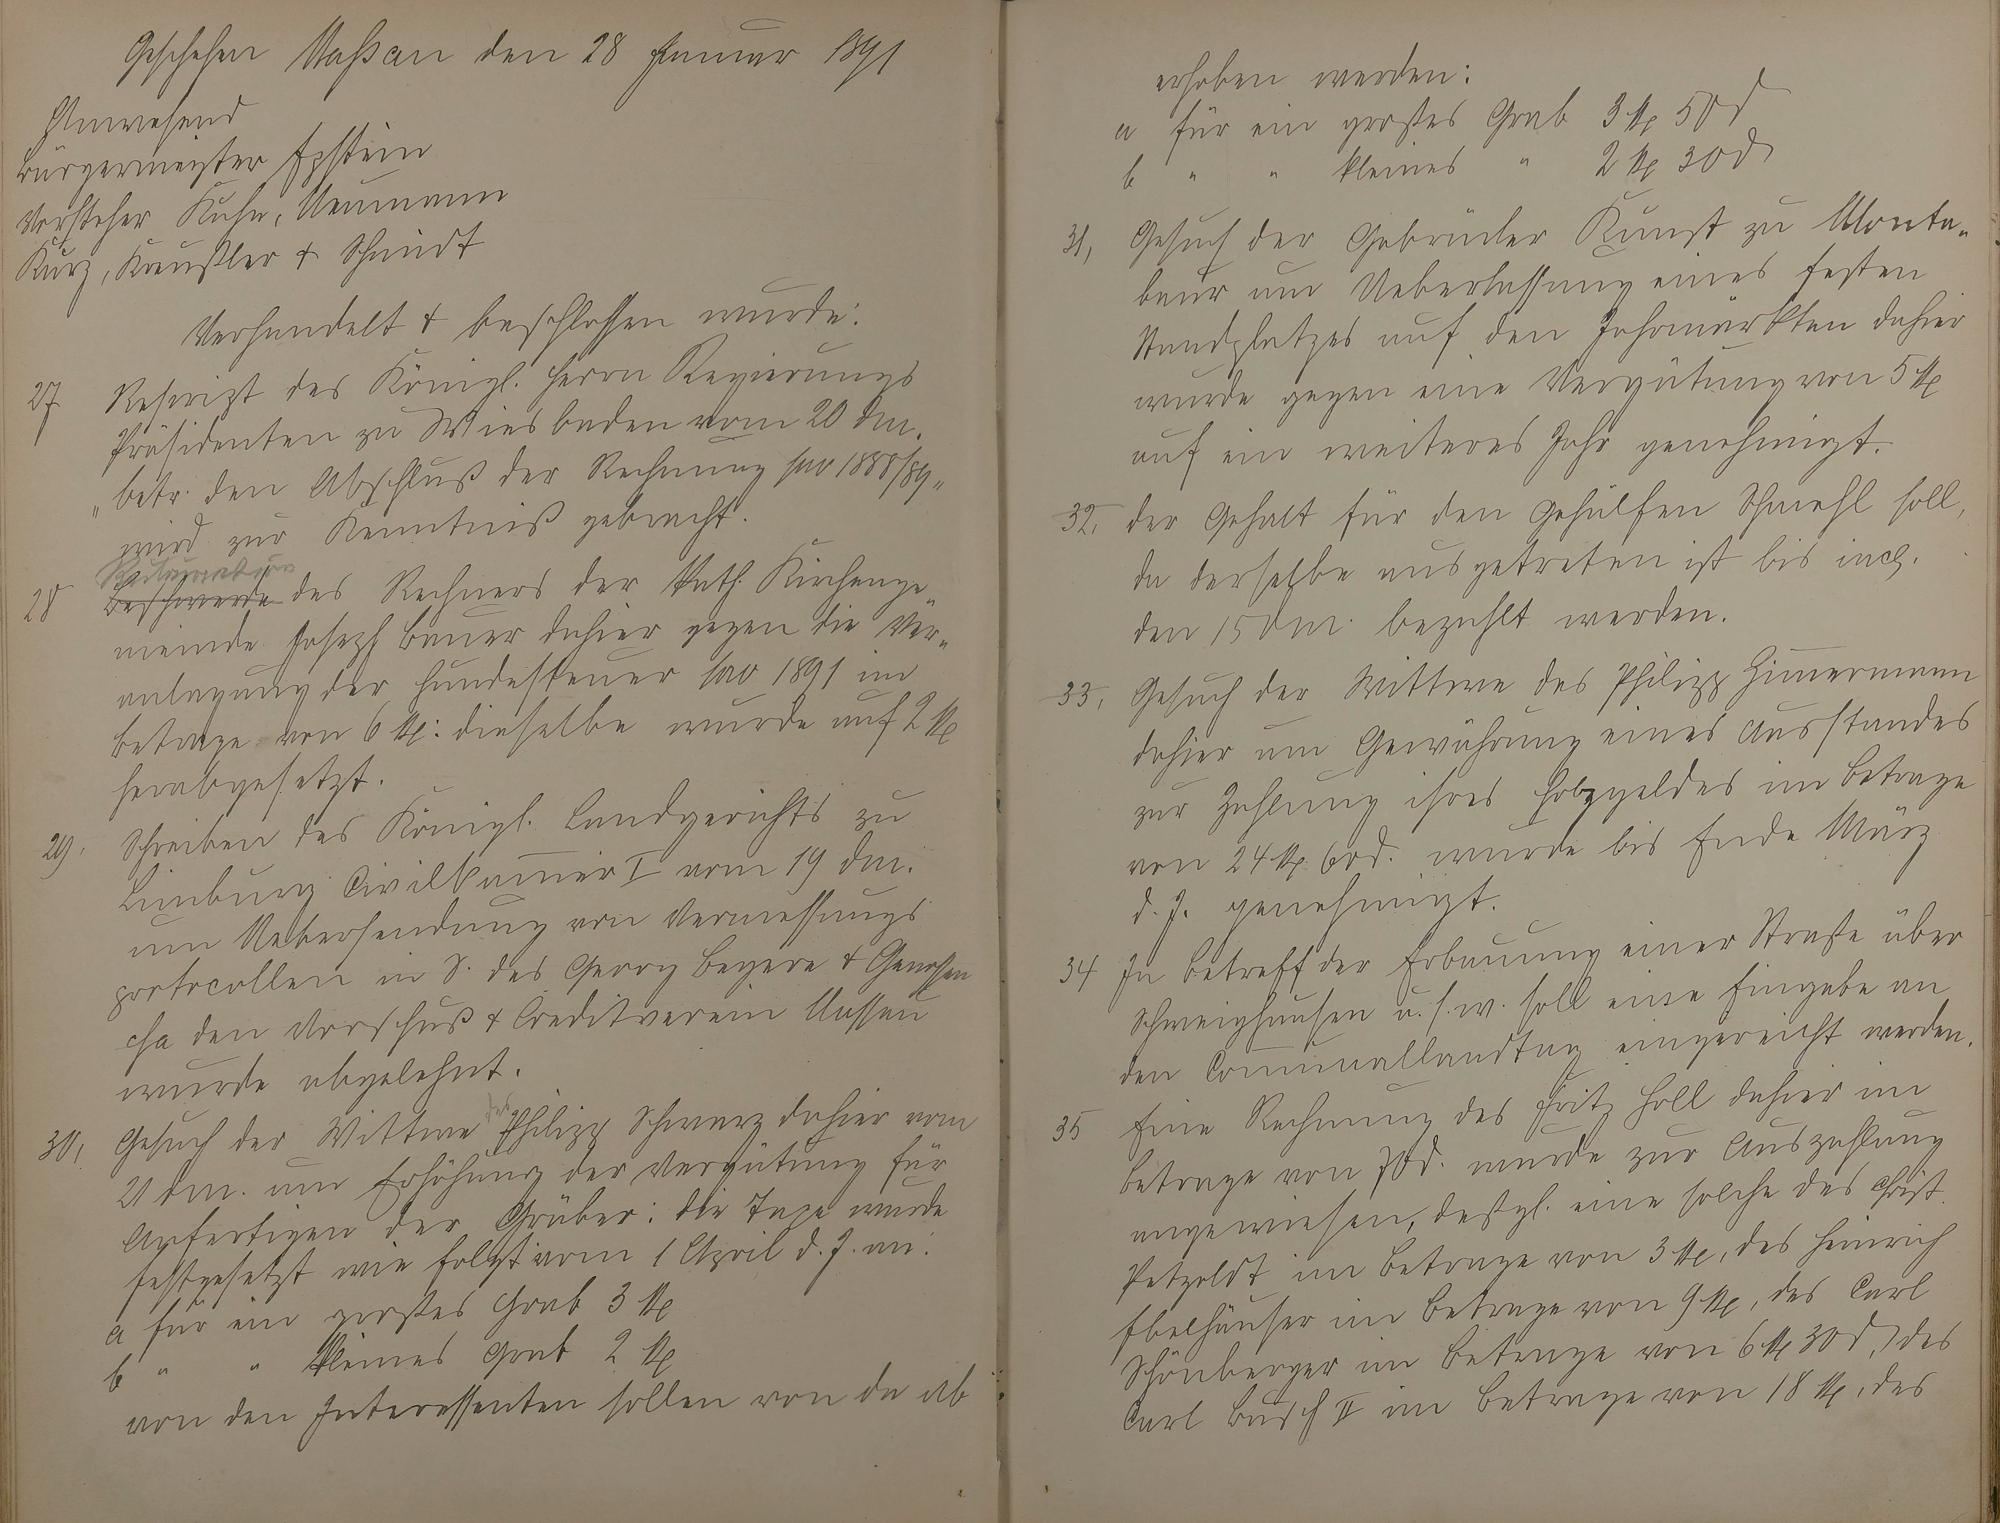 Geschehen Nassau den 28 Januar 1891
Anwesend
Bürgermeister Epstein
Vorsteher Kuhn, Neumann
Kurz, Kreußler & Schmidt
Verhandelt & beschlossen wurde:
27 Rescript des Königl. Herrn Regierungs
Präsidenten zu Wiesbaden vom 20 dm.
„betr. den Abschluß der Rechnung pro 1888/89„
wird zur Kenntniß gebracht.
Reclamation
28 Beschwerde des Rechners der kath. Kirchenge„
meinde Joseph Bauer dahier gegen die Ver„
anlagung der Hundesteuer pro 1891 im
Betrage von 6 M: dieselbe wurde auf 2 M
herabgesetzt.
29. Schreiben des Königl. Landgerichts zu
Limburg Civilkam̅er I vom 19 dm.
um Uebersendung von Vermessungs
protocollen in S. des Georg Beyere & Genossen
c/a den Vorschuß & Creditverein Nassau
wurde abgelehnt.
30, Gesuch der Wittwe des Philipp Schwarz dahier vom
21 dm. um Erhöhung der Vergütung für
Anfertigen der Gräber: die Taxe wurde
festgesetzt wie folgt vom 1 April d. J. an:
a für ein großes Grab 3 M
b " " kleines Grab 2 M
von den Interessenten sollen von da ab
erhoben werden:
a für ein großes Grab 3 M 50 d
b " " kleines " 2 M 30 d
31, Gesuch der Gebrüder Kunst zu Monta„
baur um Ueberlassung eines festen
Standplatzes auf den Jahrmärkten dahier
wurde gegen eine Vergütung von 5 M
auf ein weiteres Jahr genehmigt.
32, der Gehalt für den Gehülfen Schmehl soll,
da derselbe ausgetreten ist bis incl.
den 15 dm. bezahlt werden.
33, Gesuch der Wittwe des Philipp Zim̅ermann
dahier um Gewährung eines Ausstandes
zur Zahlung ihres Holzgeldes im Betrage
von 24 M 60 d. wurde bis Ende März
d. J. genehmigt.
34 In Betreff der Erbauung einer Straße über
Schweighausen u. s. w. soll eine Eingabe an
den Com̅unallandtag eingereicht werden.
35 Eine Rechnung des Fritz Holl dahier im
Betrage von 70 d. wurde zur Auszahlung
angewiesen, deßgl. eine solche des Christ.
Petzoldt im Betrage von 3 M, des Heinrich
Ebelhäuser im Betrage von 9 M, des Carl
Schönberger im Betrage von 6 M 30 d, des
Carl Busch II im Betrage von 18 M, des